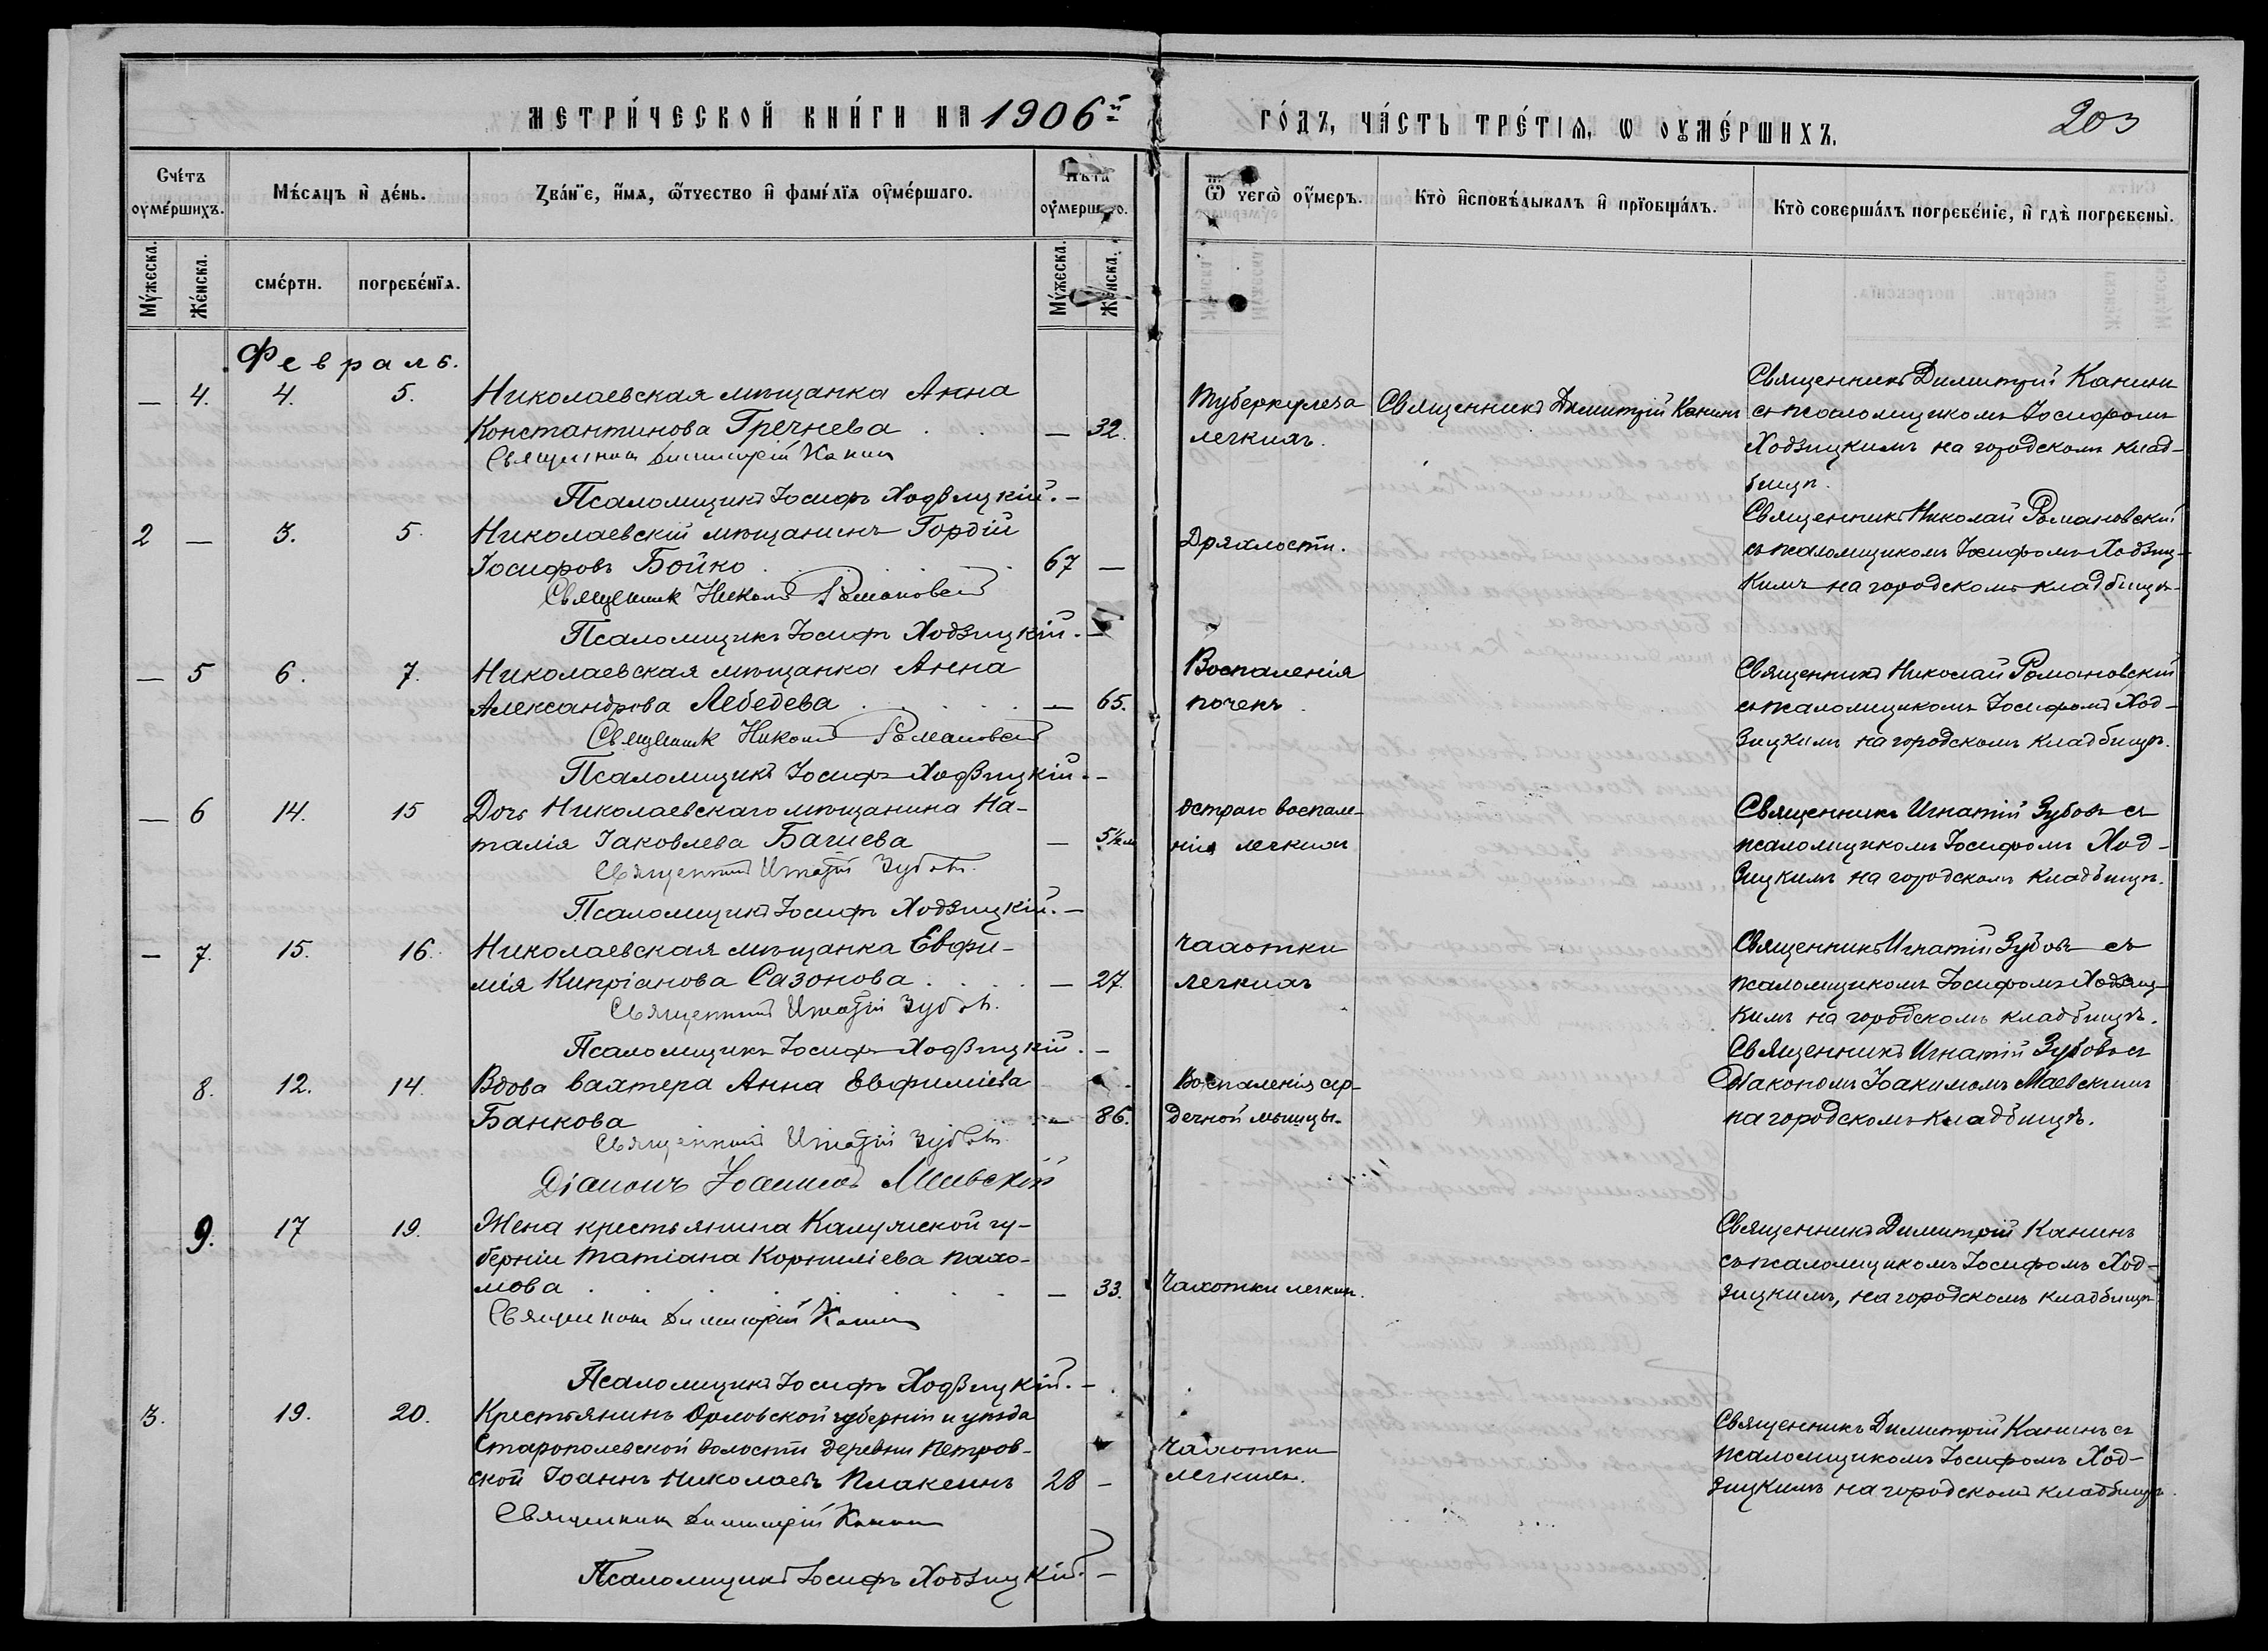 МЕТРИ́ЧЕСКОЙ КНИ́ГИ НА 1906й ГО́ДЪ, ЧА́СТЬ ТРЕ́ТІѦ, Ѡ ОУ҆МЕ́РШИХЪ.
203
Сче́тъ оуме́ршихъ.
Мѣ́сѧцъ и҆ де́нь.
Зва́нїе, и҆́мѧ, ѻ҆́тчество и҆ фамі́лїѧ оу҆ме́ршаго.
Лѣта оу҆мерш го.
Ѿ чегѡ̀ оу҆́меръ.
Кто̀ и҆сповѣ́дывалъ и҆ прїобща́лъ.
Кто̀ соверша́лъ погребе́нїе, и҆ гдѣ̀ погребены̀.
Му́жеска.
Же́нска.
сме́рти.
погребе́нїѧ.
Му́жеска.
Же́нска.
Февраль.
— 4. 4. 5. Николаевская мѣщанка Анна
Константинова Гречнева — 32.
Священникъ Димитрій Канин
Псаломщикъ Іосифъ Ходзицкій. —
Туберкулеза
легкихъ.
Священникъ Димитрій Канинъ
Священникъ Димитрій Канинъ
съ псаломщикомъ Іосифомъ
Ходзицкимъ на городскомъ клад-
бищѣ.
2 — 3. 5. Николаевскій мѣщанинъ Гордій
Іосифовъ Бойко 67 —
Священник Николай Романовскій
Псаломщикъ Іосифъ Ходзицкій. —
Дряхлости.
Священникъ Николай Романовскій
съ псаломщикомъ Іосифомъ Ходзиц-
кимъ на городскомъ кладбищѣ.
— 5 6. 7. Николаевская мѣщанка Анна
Александрова Лебедева — 65.
Священник Николай Романовскій
Псаломщикъ Іосифъ Ходзицкій. —
Воспаленія
почекъ.
Священникъ Николай Романовскій
съ псаломщикомъ Іосифомъ Ход-
зицкимъ на городскомъ кладбищѣ.
— 6 14. 15 Дочь Николаевскаго мѣщанина На-
талія Іаковлева Багиева — 5½м
Священникъ Игнатій Зубовъ.
Псаломщикъ Іосифъ Ходзицкій. —
Остраго воспале-
нія легкихъ
Священникъ Игнатій Зубовъ съ
псаломщикомъ Іосифомъ Ход-
зицкимъ на городскомъ кладбищѣ.
— 7. 15. 16. Николаевская мѣщанка Евфи-
мія Кипріанова Сазонова — 27.
Священникъ Игнатій Зубовъ.
Псаломщикъ Іосифъ Ходзицкій. —
Чахотки
легкихъ
Священникъ Игнатій Зубовъ съ
псаломщикомъ Іосифомъ Ходзиц-
кимъ на городскомъ кладбищѣ.
8. 12. 14. Вдова вахтера Анна Евфиміева
Банкова — 86.
Священникъ Игнатій Зубовъ.
Діаконъ Іоакимъ Маевскій
Воспаленія сер-
дечной мышцы.
Священникъ Игнатій Зубовъ съ
Діакономъ Іоакимомъ Маевскимъ
на городскомъ кладбищѣ.
9. 17 19. Жена крестьянина Калужской гу-
берніи Татіана Корниліева Пахо-
мова — 33.
Священникъ Димитрій Канин
Псаломщикъ Іосифъ Ходзицкій. —
Чахотки легкихъ.
Священникъ Димитрій Канинъ
съ псаломщикомъ Іосифомъ Ход-
зицкимъ, на городскомъ кладбищѣ
3. 19. 20. Крестьянинъ Орловской губерніи и уѣзда
Старопольской волости деревни Петров-
ской Іоаннъ Николаевъ Плакеинъ 28 —
Священникъ Димитрій Канин
Псаломщикъ Іосифъ Ходзицкій. —
Чахотки
легкихъ.
Священникъ Димитрій Канинъ съ
псаломщикомъ Іосифомъ Ход-
зицкимъ на городскомъ кладбищѣ.